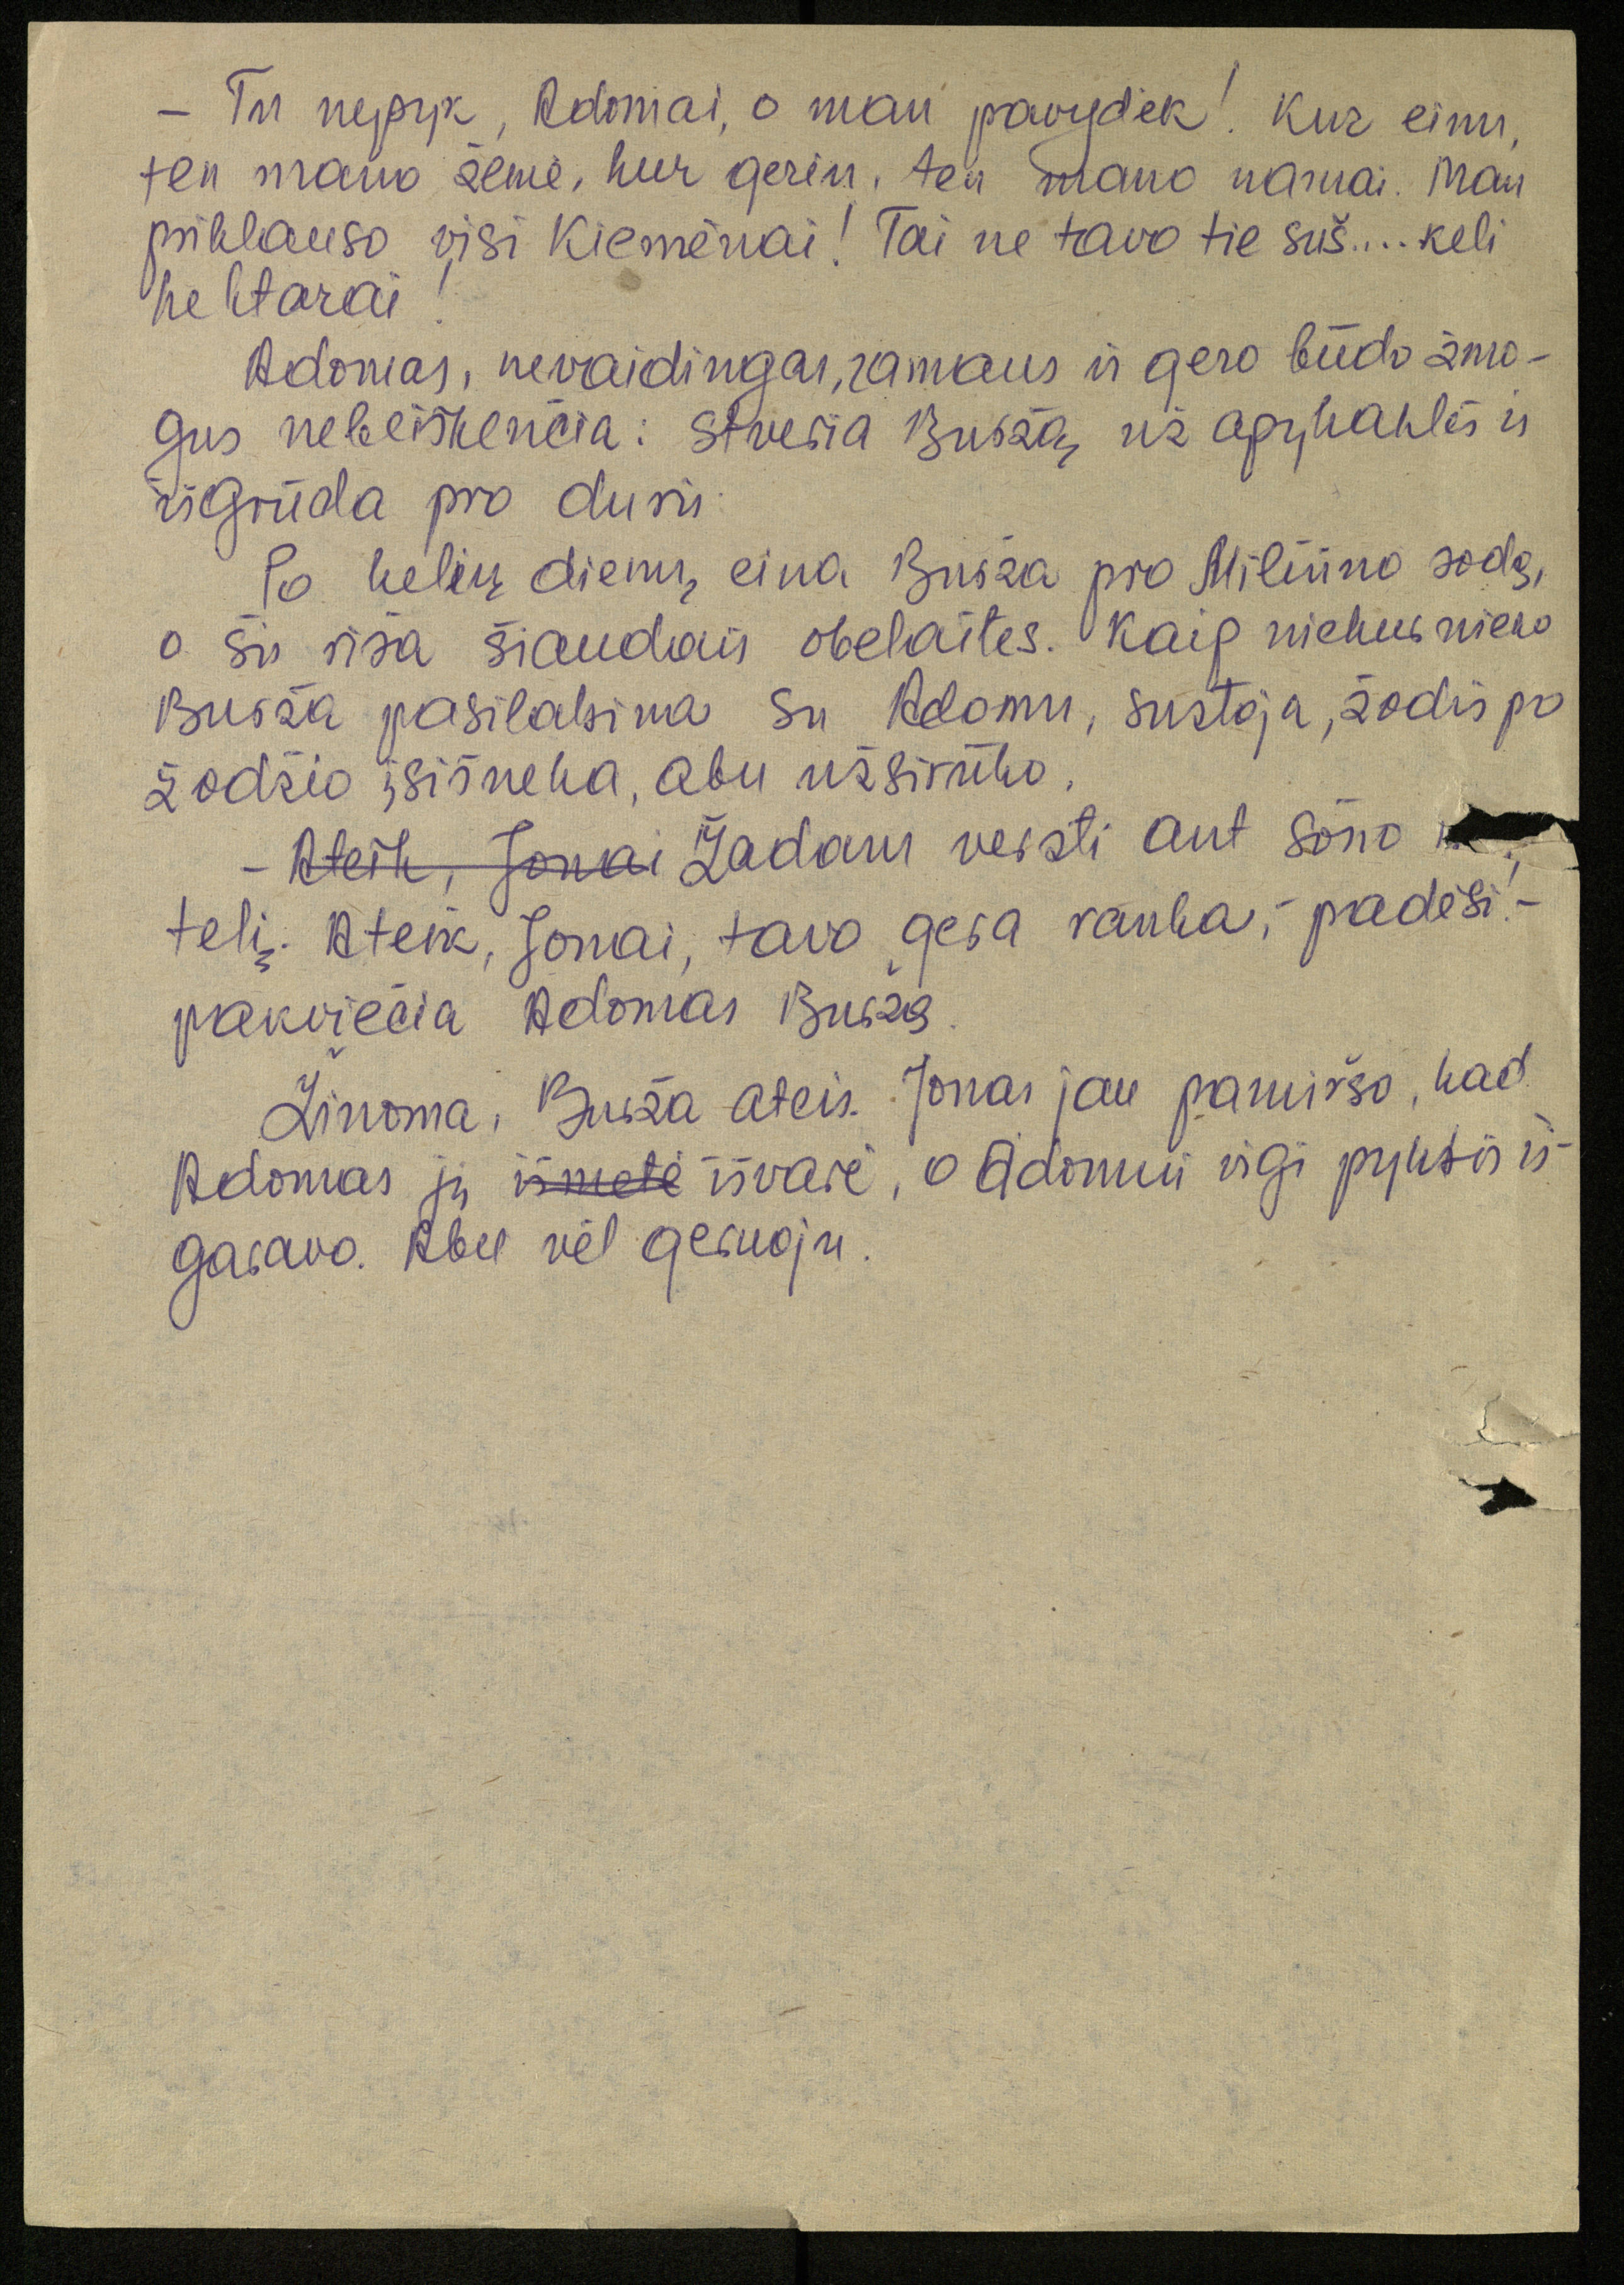 – Tu nepyk, Adomai, o man pavydėk! Kur einu,
ten mano žemė, kur geriu, ten mano namai. Man
priklauso visi Kiemėnai! Tai ne tavo tie suš.... keli
hektarai!
Adomas, nevaidingas, ramaus ir gero būdo žmo-
gus nebeiškenčia: stveria Buržą už apykaklės ir
išgrūda pro duris.
Po kelių dienų eina Burža pro Miliūno sodą,
o šis riša šiaudais obelaites. Kaip niekur nieko
Burža pasilabina su Adomu, sustoja, žodis po
žodžio įsišneka, abu užsirūko.
– Ateik, Jonai Žadam versti ant šono
telį. Ateik, Jonai, tavo gera ranka, – padėsi! –
pakviečia Adomas Buržą.
Žinoma, Burža ateis. Jonas jau pamiršo, kad
Adomas jį išmetė išvarė, o Adomui irgi pyktis iš-
garavo. Abu vėl geruoju.